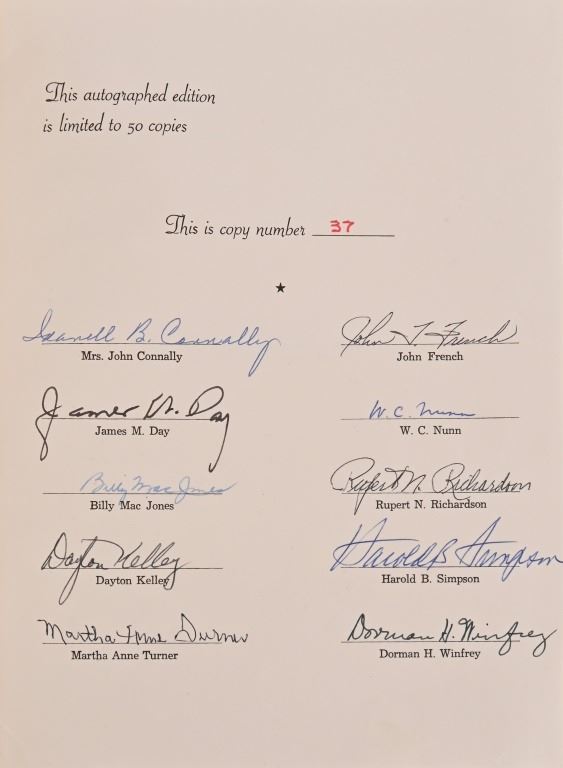 This autographed edition
is limited to 50 copies
This is copy number 37
Idanell B. Connally
Mrs. John Connally
John T. French
John French
James M. Day
James M. Day
W. C. Nunn
W. C. Nunn
Billy Mac Jones
Billy Mac Jones
Rupert N. Richardson
Rupert N. Richardson
Dayton Kelley
Dayton Kelley
Harold B Simpson
Harold B. Simpson
Martha Anne Turner
Martha Anne Turner
Dorman H. Winfrey
Dorman H. Winfrey